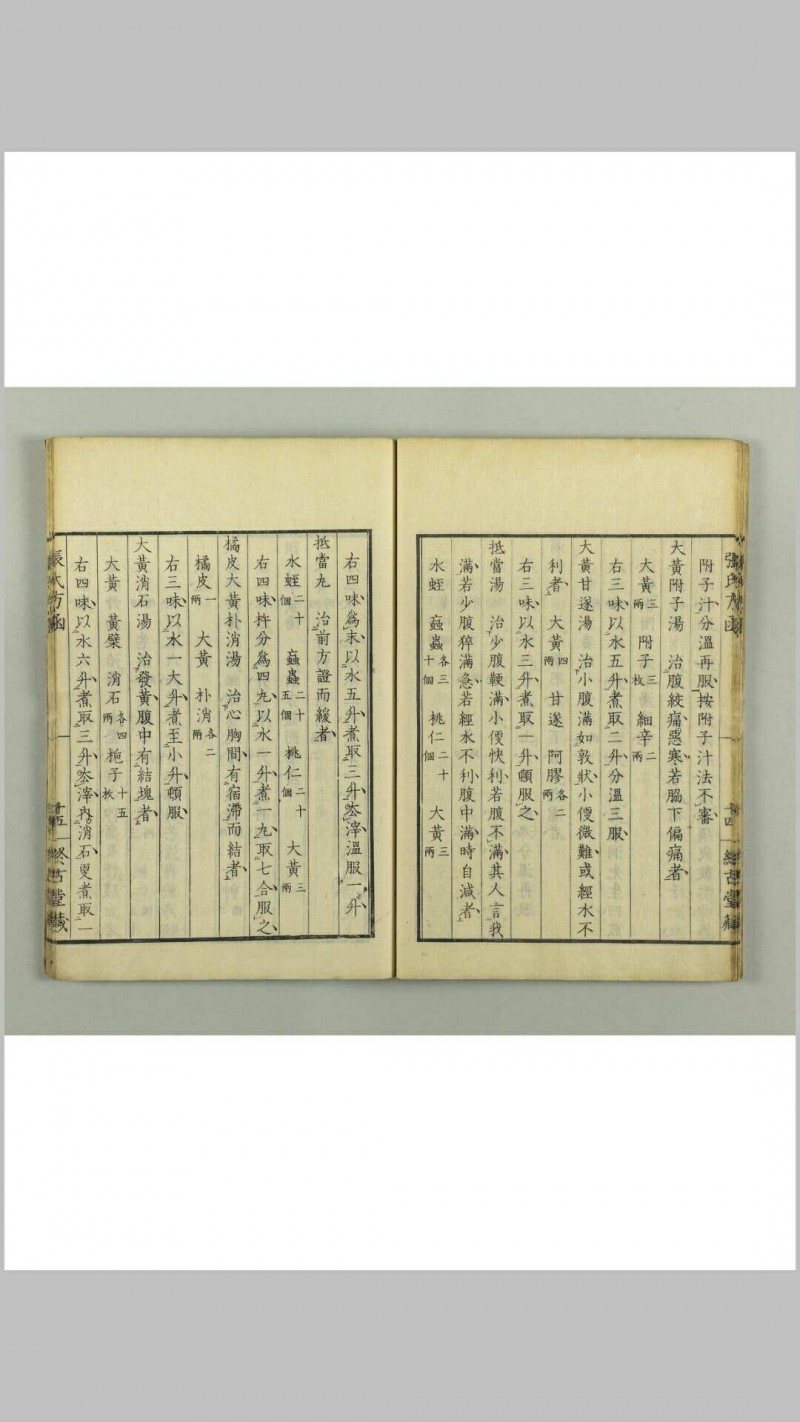 張氏方函
十四
附子汁分溫再服按附子汁法不審
大黃附子湯 治腹絞痛惡寒若脇下偏痛者
大黃三兩 附子三枚 細辛二兩
右三味以水五升煮取二升分溫三服
大黃甘遂湯 治小腹滿如敦狀小便微難或經水不
利者 大黃四兩 甘遂 阿膠各二兩
右三味以水三升煮取一升頓服之
抵當湯 治少腹鞕滿小便快利若腹不滿其人言我
滿若少腹猝滿急若經水不利腹中滿時自減者
水蛭 䖟蟲各三十個 桃仁二十個 大黃三兩
右四味爲末以水五升煮取三升去滓溫服一升
抵當丸 治前方證而緩者
水蛭二十個 䖟蟲二十五個 桃仁二十個 大黃三兩
右四味杵分爲四丸以水一升煮一丸取七合服之
橘皮大黃朴消湯 治心胸間有宿滯而結者
橘皮一兩 大黃 朴消各二兩
右三味以水一大升煮至小升頓服
大黃消石湯 治發黃腹中有結塊者
大黃 黃檗 消石各四兩 梔子十五枚
右四味以水六升煮取三升去滓內消石更煮取一
張氏方函
十五
聚古堂藏